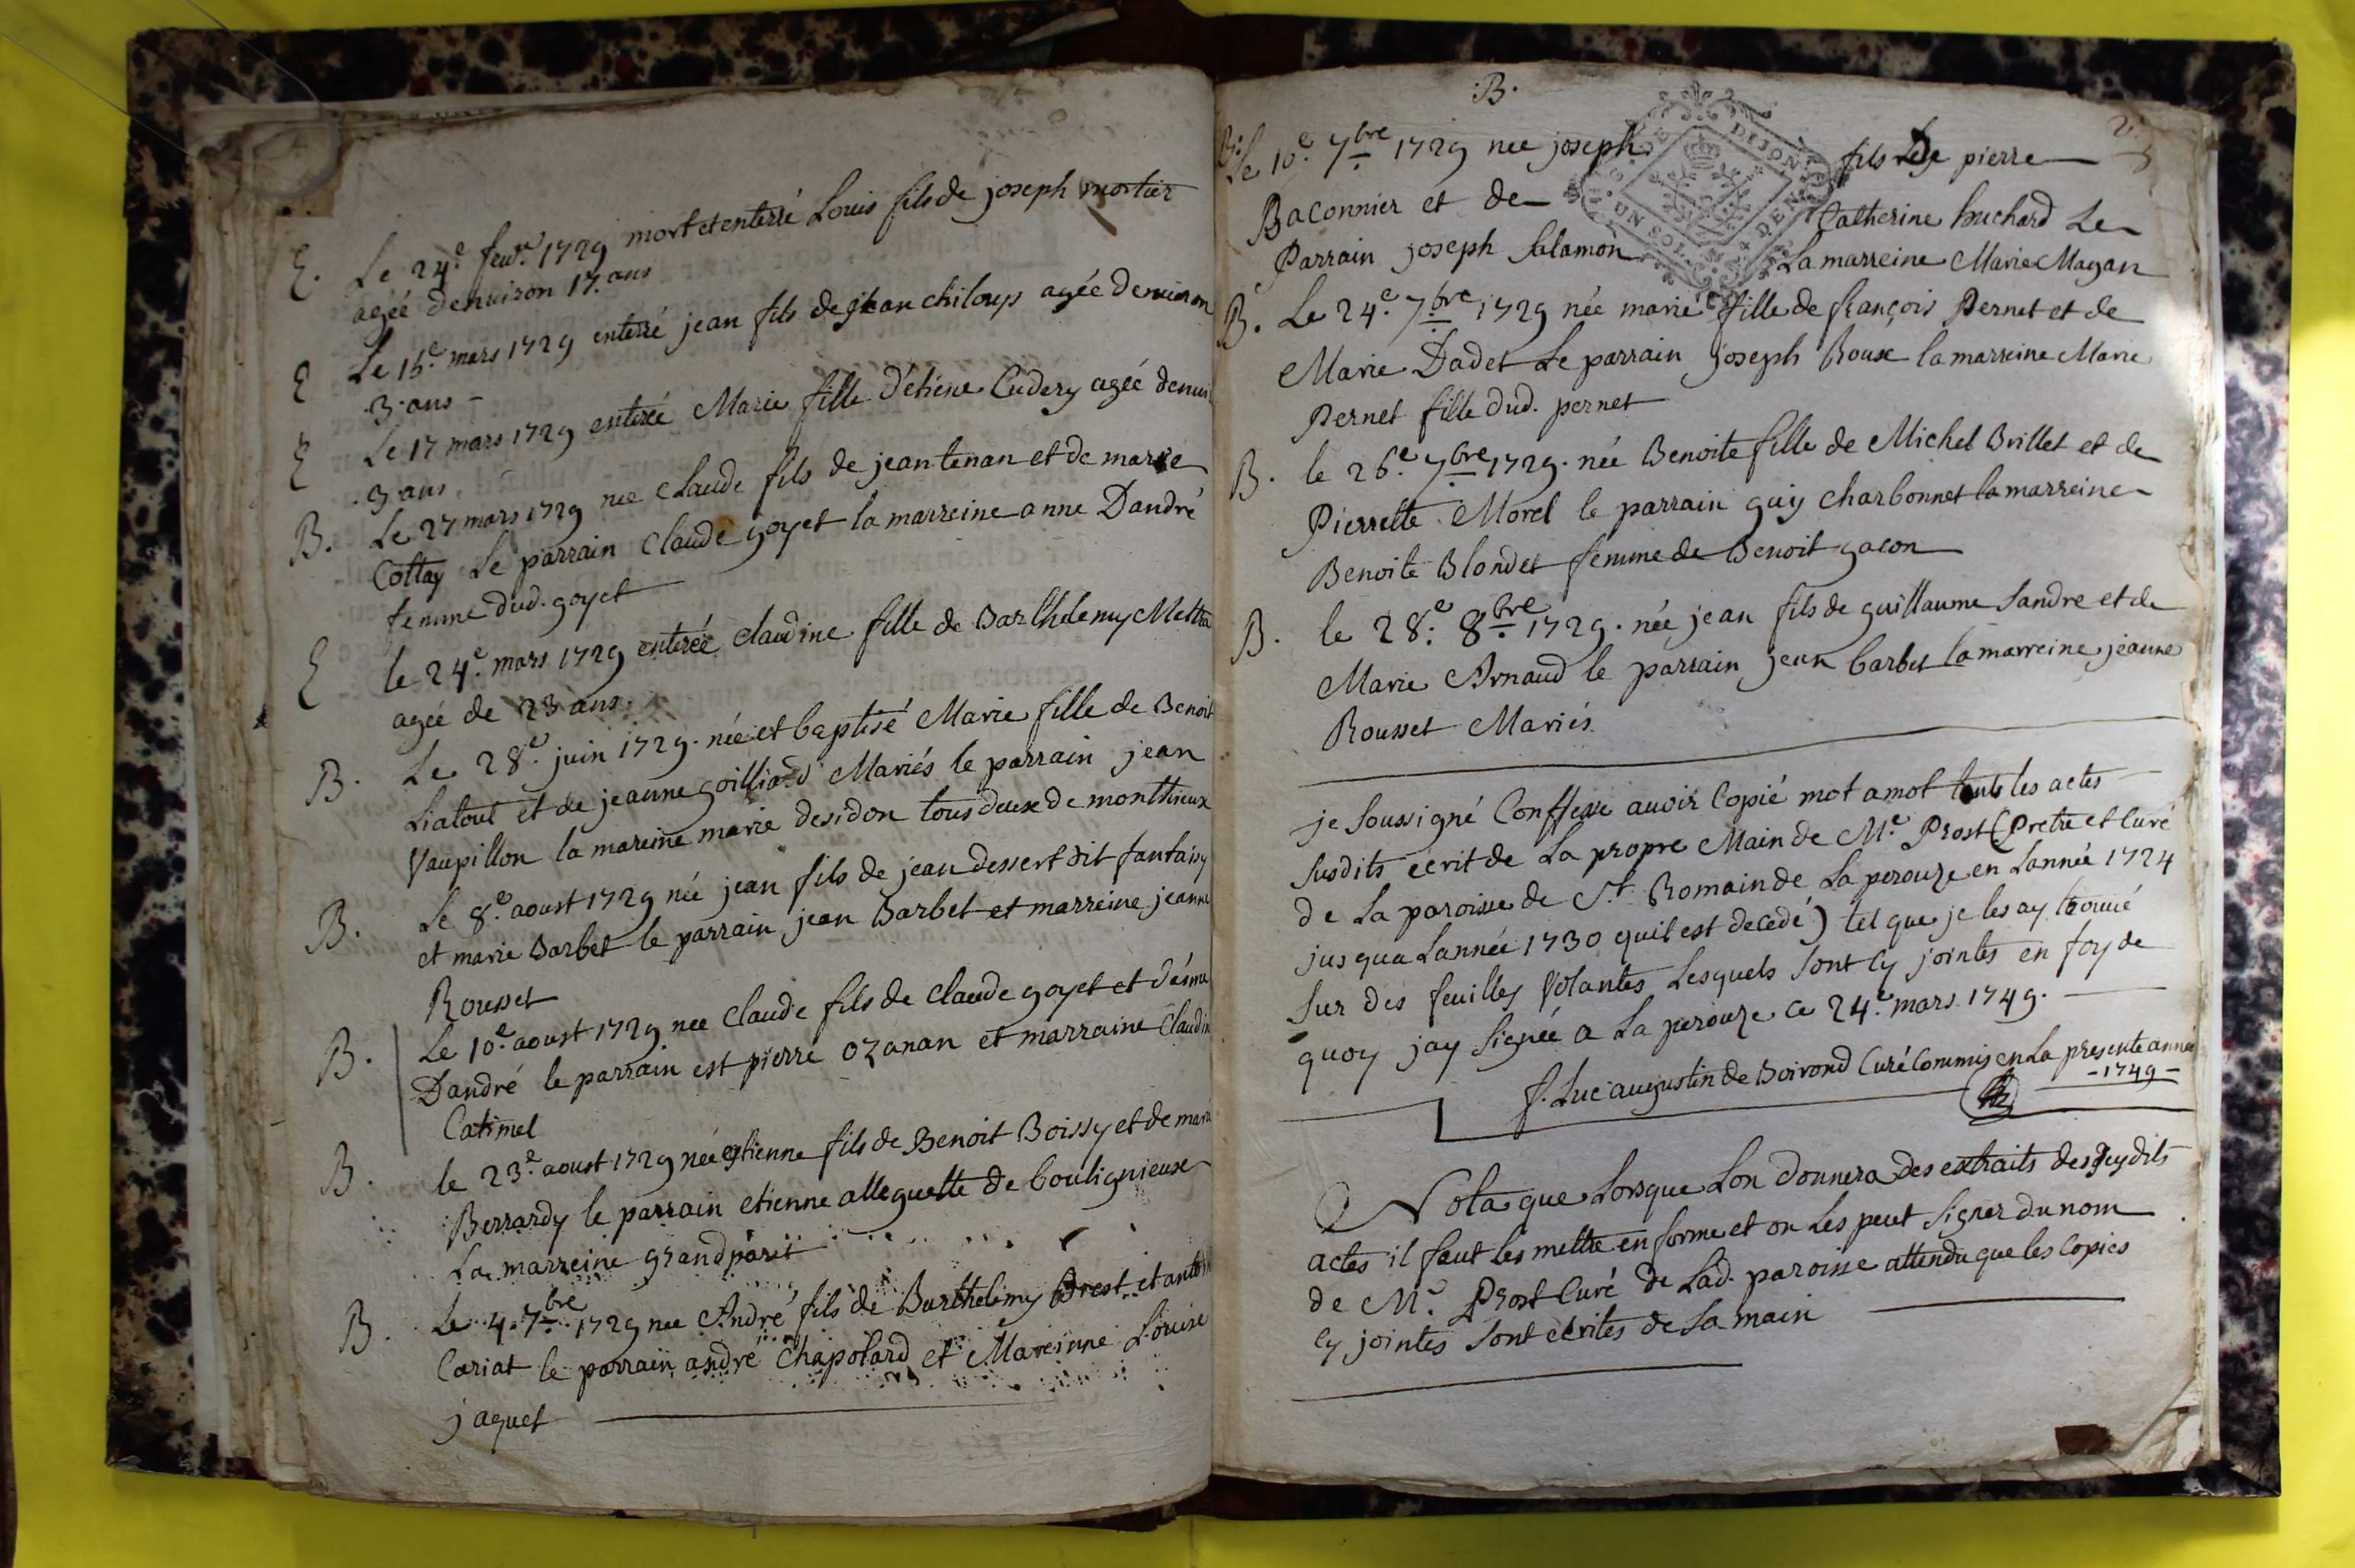 E. Le 24.e feur. 1729 mort et enterré Louis fils de joseph mortier
agéé denuiron 17. ans
E Le 15.e mars 1729 enterré jean fils de jean chiloup agée denuiron
.3. ans -
E Le 17 mars 1729 enterée Marie fille d'étiene Cudery agéé denui
.3 ans
B. Le 27 mars 1729 nee claude fils de jean tenan et de marie
Cottay Le parrain claude goyet la marreine anne Dandré
femme dud. goyet
E le 24.e mars 1729 enterée claudine fille de Barthelemy Mettra
agéé de 23 ans
B. Le 28.e juin 1729. née et baptisé Marie fille de Benoit
Liatout et de jeanne goilliard Mariés le parrain jean
Vaupillon la mareine marie desidon tous deux de monthieux
B. Le 8.e aoust 1729 née jean fils de jean dessert dit fantaisy
et marie Barbet le parrain jean Barbet et marreine jeanne
Rousset
B. Le 10.e aoust 1729 nee claude fils de claude goyet et d'éme
Dandré le parrain est pierre ozanan et marraine Claudin
Catimel
B. le 23.e aoust 1729 née etienne fils de Benoit Boissy et de mari
Berrardy le parrain etienne alleguette de bouligneux
La marreine grandparit
B. Le 4. 7bre 1729 nee André fils de Barthelémy Brest et antoi
Cariat le parrain andré Chapolard et Mareinne Louise
jaquet
.B.
2
B. Le 10.e 7bre 1729 nee joseph fils de pierre
G. DE DIJON
UN SOL 4 DEN
Baconnier et de Catherine huchard Le
Parrain joseph Salamon La marreine Marie Magan
B. Le 24.e 7bre 1729 née marie fille de françois Pernet et de
Marie Dadet Le parrain joseph Roux la marreine Marie
Pernet fille dud. pernet
B. le 26.e 7bre 1729. née Benoite fille de Michel Brillet et de
Pierrette Morel le parrain guiy charbonnet la marreine
Benoite Blondet femme de Benoit gacon
B. le 28.e 8bre 1729. née jean fils de guillaume Sandre et de
Marie Arnaud le parrain jean barbet la marreine jeanne
Rousset Mariés.
je Soussigné Conffesse auoir Copié mot a mot touts les actes
Susdits ecrit de La propre Main de M.e Prost (Pretre et Curé
de La paroisse de St. Romain de La perouze en Lannée 1724
jusqua Lannée 1730 quil est decedé) tel que je les ay trouué
Sur des feuilles Volantes Lesquels Sont Cy jointes en foy de
quoy jay Signée a La perouze ce 24.e mars 1749.
f. Luc augustin de Boirond Curé Commis en La presente année
- 1749 -
Nota que Lorsque Lon donnera des extraits desSusdits
actes il faut les mettre en forme et on Les peut Signer du nom
de M.r Prost Curé de Lad. paroisse attendu que les Copies
Cy jointes Sont ecrites de Sa main